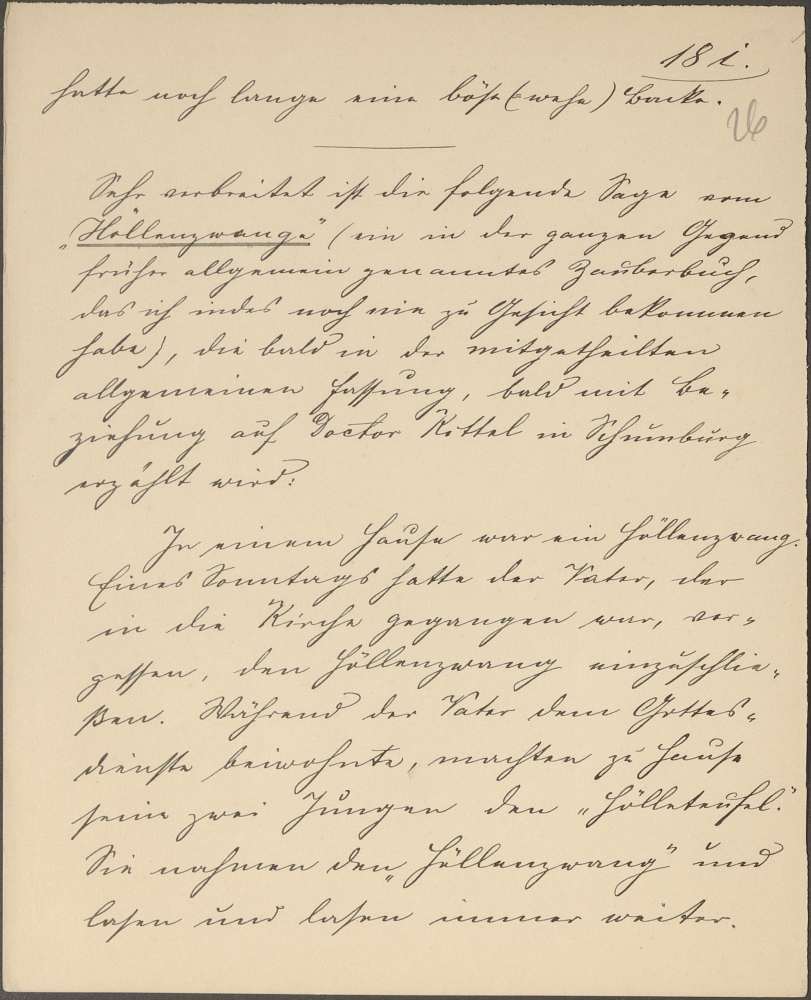 18 i.
hatte noch lange eine böse (= wehe) Backe.
26
Sehr verbreitet ist die folgende Sage vom
„Höllenzwange“ (ein in der ganzen Gegend
früher allgemein genanntes Zauberbuch,
das ich indes noch nie zu Gesicht bekommen
habe), die bald in der mitgetheilten
allgemeinen Fassung, bald mit Be-
ziehung auf Doctor Kittel in Schumburg
erzählt wird:
In einem Hause war ein Höllenzwang.
Eines Sonntags hatte der Vater, der
in die Kirche gegangen war, ver-
gessen, den Höllenzwang einzuschlie-
ßen. Während der Vater dem Gottes-
dienste beiwohnte, machten zu Hause
seine zwei Jungen den „Hölleteufel“.
Sie nahmen den „Höllenzwang“ und
lasen und lasen immer weiter.